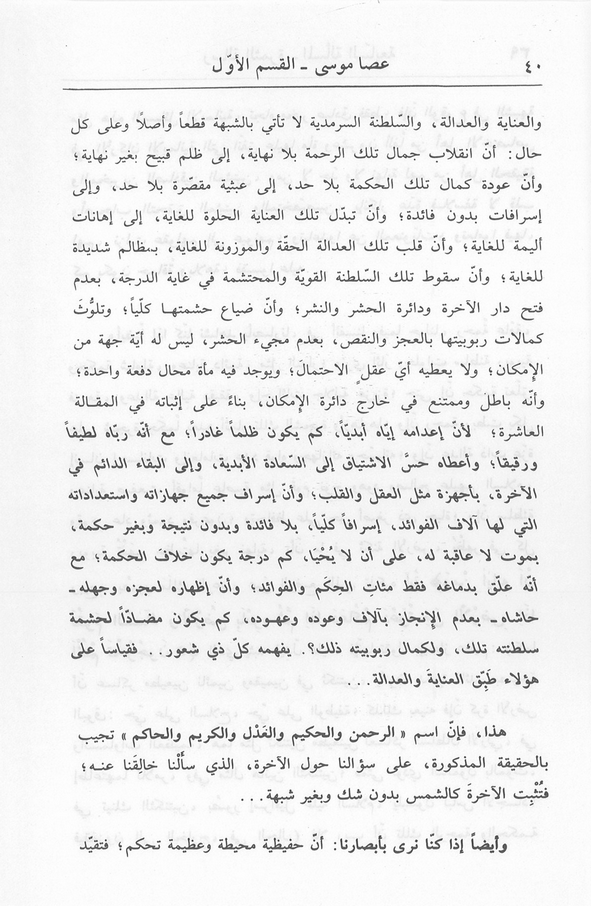 ٤٠ عصا موسى ـ القسم الأوّل
والعناية والعدالة، والسّلطنة السرمدية لا تأتي بالشبهة قطعاً وأصلًا وعلى كل
حال: أنّ انقلاب جمال تلك الرحمة بلا نهاية، إلى ظلم قبيح بغير نهاية؛
وأنّ عودة كمال تلك الحكمة بلا حد، إلى عبثية مقصّرة بلا حد، وإلى
إسرافات بدون فائدة؛ وأنّ تبدّل تلك العناية الحلوة للغاية، إلى إهانات
أليمة للغاية؛ وأنّ قلب تلك العدالة الحقّة والموزونة للغاية، بمظالم شديدة
للغاية؛ وأنّ سقوط تلك السّلطنة القويّة والمحتشمة في غاية الدرجة، بعدم
فتح دار الآخرة ودائرة الحشر والنشر؛ وأنّ ضياع حشمتها كلّياً؛ وتلوُّثَ
كمالات ربوبيتها بالعجز والنقص، بعدم مجيء الحشر، ليس له أيّة جهة من
الإمكان؛ ولا يعطيه أيّ عقلٍ الاحتمالَ؛ ويوجد فيه مأة محال دفعة واحدة؛
وأنّه باطل وممتنع في خارج دائرة الإمكان، بناءً على إثباته في المقالة
العاشرة؛ لأنّ إعدامه إيّاه أبديّاً، كم يكون ظلماً غادراً؛ مع أنّه ربّاه لطيفاً
ورقيقاً؛ وأعطاه حسَّ الاشتياق إلى السّعادة الأبدية، وإلى البقاء الدائم في
الآخرة، بأجهزة مثل العقل والقلب؛ وأنّ إسراف جميع جهازاته واستعداداته
التي لها آلاف الفوائد، إسرافاً كلّياً، بلا فائدة وبدون نتيجة وبغير حكمة،
بموت لا عاقبة له، على أن لا يُحْيَا، كم درجة يكون خلافَ الحكمة؛ مع
أنّه علّق بدماغه فقط مئاتِ الحِكَم والفوائد؛ وأنّ إظهاره لعجزه وجهله ـ
حاشاه ـ بعدم الإنجاز بآلاف وعوده وعهوده، كم يكون مضادّاً لحشمة
سلطنته تلك، ولكمال ربوبيته ذلك؟. يفهمه كلّ ذي شعور.. فقياساً على
هؤلاء طَبِّق العنايةَ والعدالة...
هذا، فإنّ اسم «الرحمن والحكيم والعَدْل والكريم والحاكم» تجيب
بالحقيقة المذكورة، على سؤالنا حول الآخرة، الذي سأَلْنا خالِقَنا عنه؛
فتُثْبِت الآخرةَ كالشمس بدون شك وبغير شبهة...
وأيضاً إذا كنّا نرى بأبصارنا: أنّ حفيظية محيطة وعظيمة تحكم؛ فتقيّد